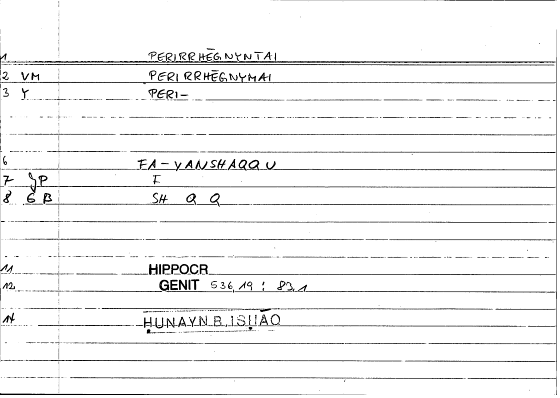 1 PERIRRHĒGNYNTAI
2 VM PERIRRHĒGNYMAI
3 Y PERI-
6 FA-YANSHAQQU
7 JP F
8 GB SH Q Q
11 HIPPOCR
12 GENIT 536,19 : 83,1
14 ḤUNAYN B. ISḤĀQ